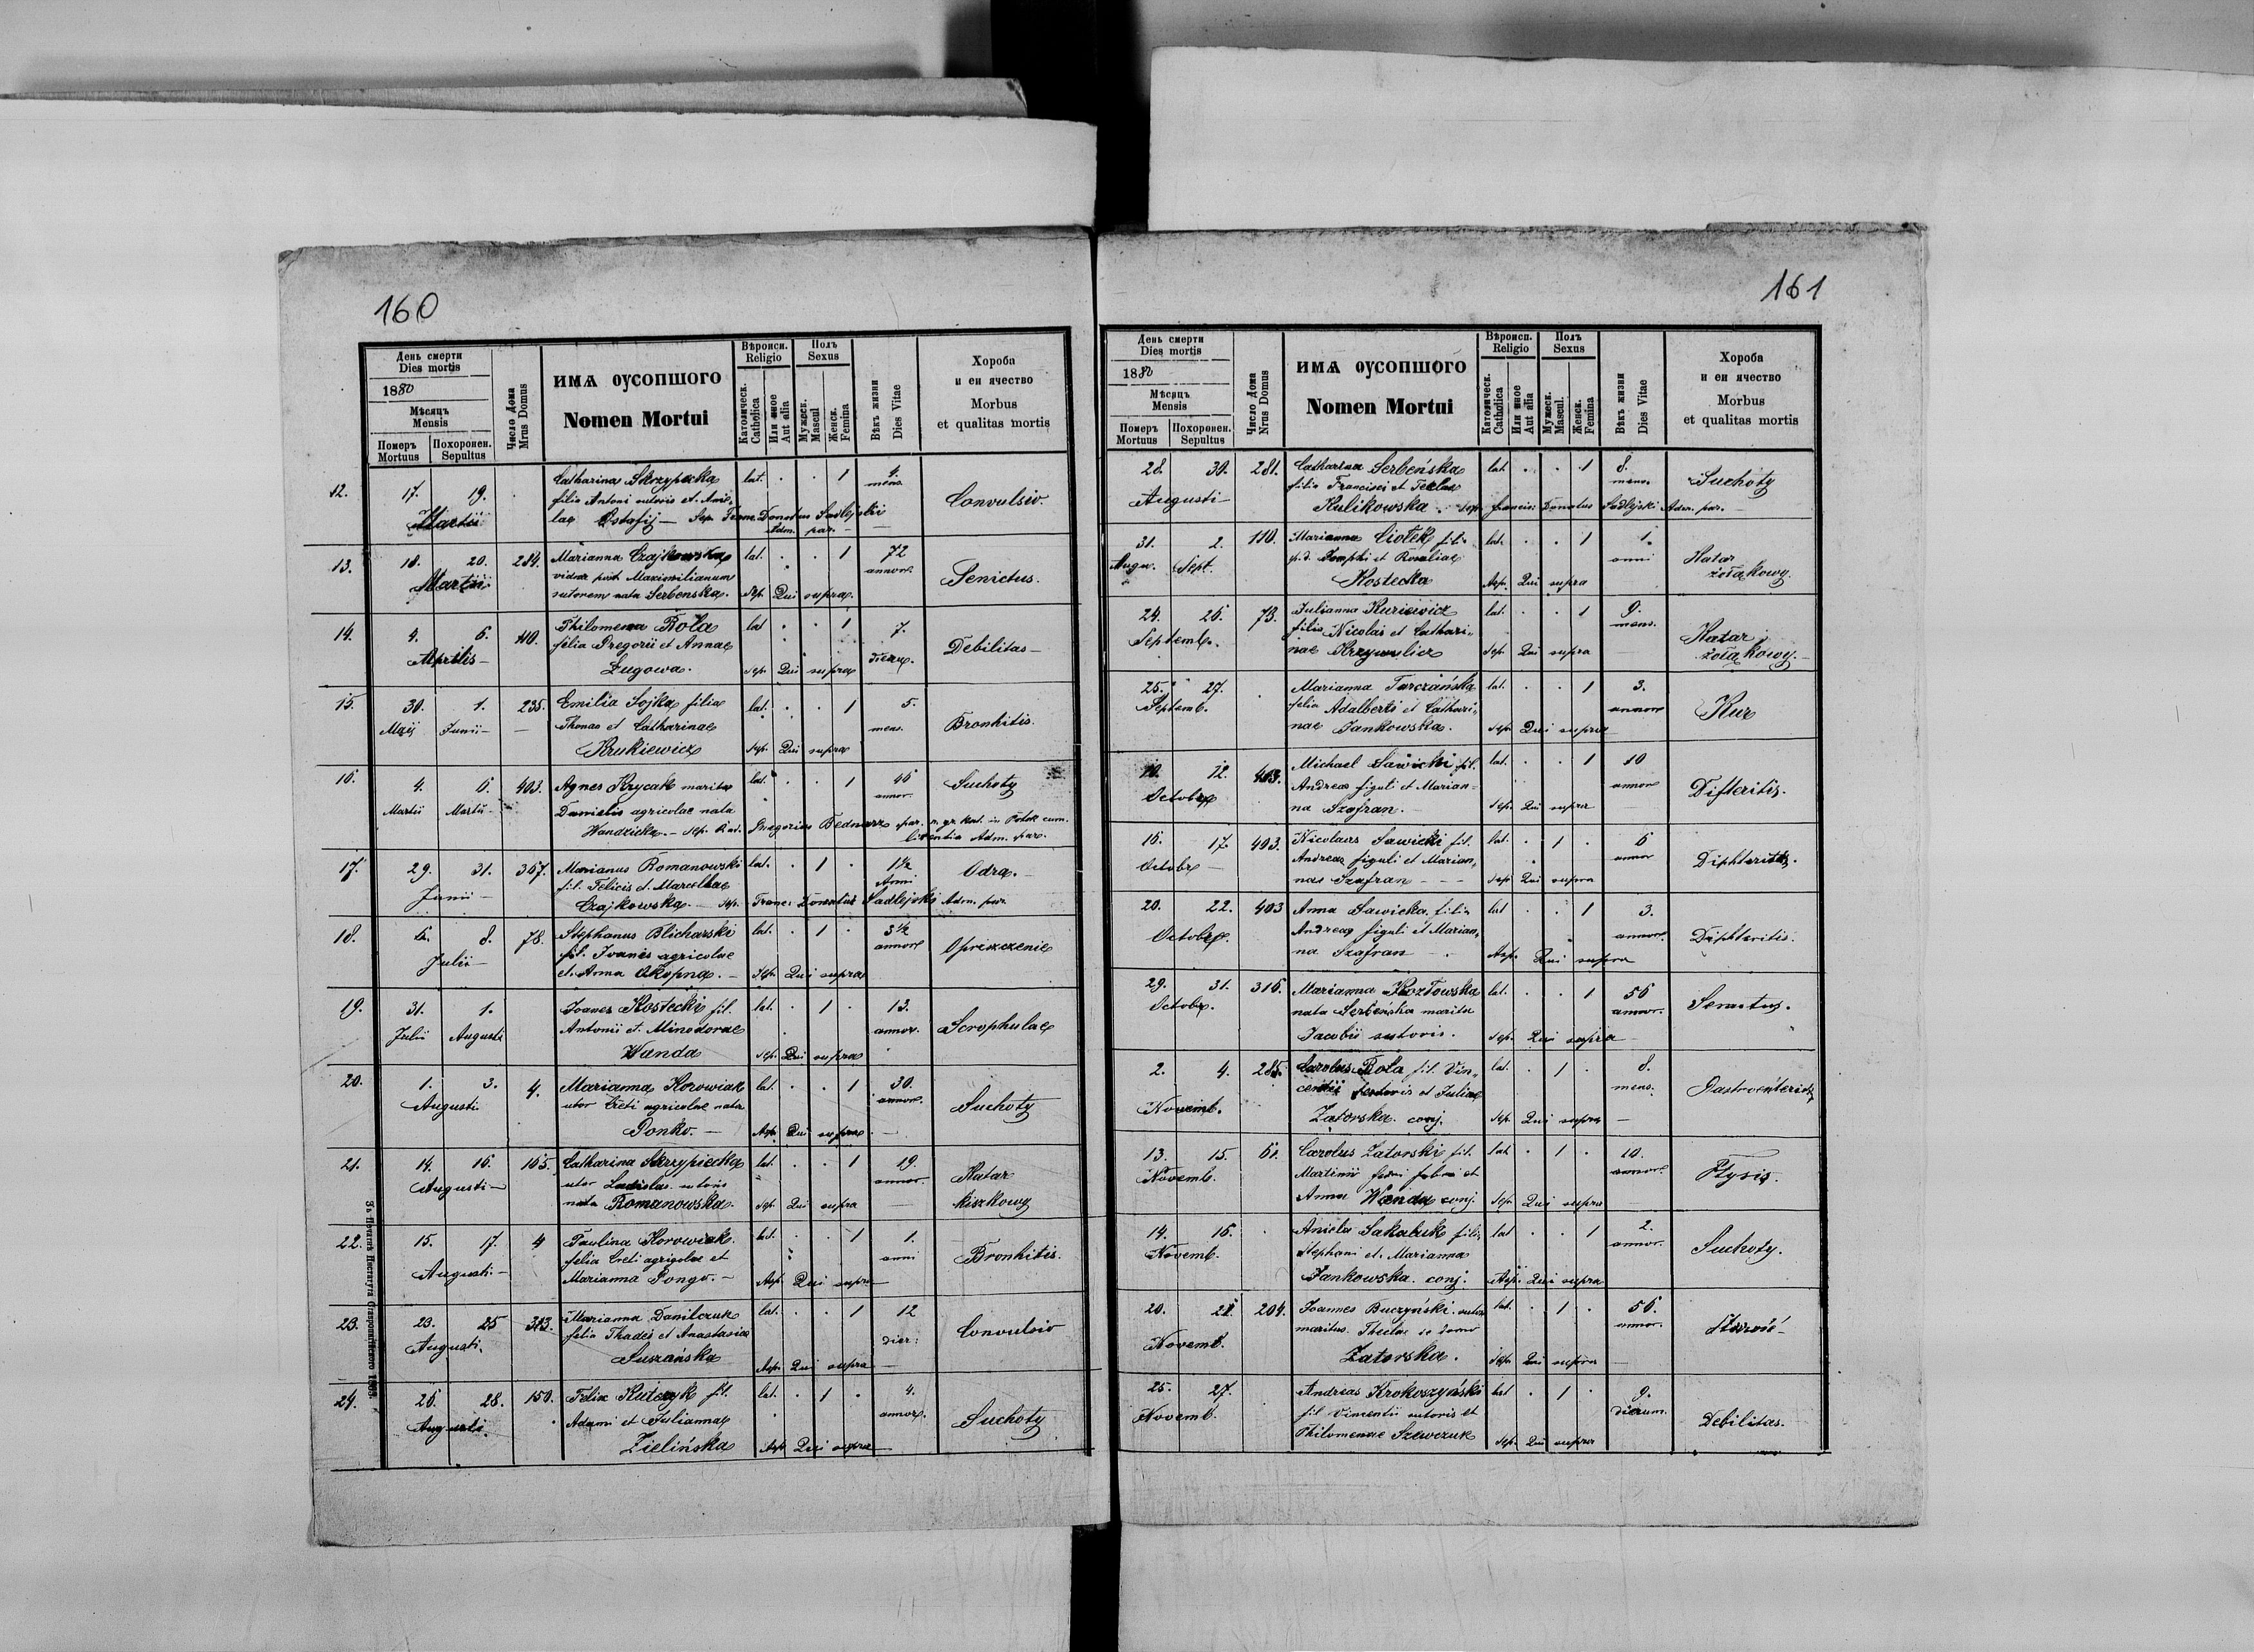 160
День смерти
Dies mortis
1880
Мѣсяцъ
Mensis
Померъ
Mortuus
Похоронен.
Sepultus
Число Дома
Mrus Domus
ИМѦ ОУСОПШОГО
Nomen Mortui
Вѣроисп.
Religio
Католическ.
Catholica
Или иное
Aut alia
Полъ
Sexus
Мужеск.
Mascul
Женск.
Femina
Вѣкъ жизни
Dies Vitae
Хороба
и еи ячество
Morbus
et qualitas mortis
12. 17. 19. Catharina Skrzypecka lat. . . 1 4. mens. Convulsio.
Martii filia Antoni sutoris et
Ostafij — Sep. Franc. Donatus Sadlejski
Adm. par. —
13. 18. 20. 284. Marianna Czajkowska lat. . . 1 72 annor. Senictus.
Martii vidua post Maximilianum
sutorem nata Serbenska. Sep. Qui supra.
14. 4. 6. 110. Philomena Rola lat . . 1 7. dierum. Debilitas —
Aprilis — filia Gregorii et Annae
Lugowa. Sep. Qui supra
15. 30. 1. 235. Emilia Sojka filia lat. . . 1 5. mens. Bronhitis.
Maij Junii — Thomae et Catharinae
Krukiewicz Sep. Qui supra
16. 4. 6. 403. Agnes Krycak marita lat. . . 1 46 annor. Suchoty
Martii Martii — Danielis agricolae nata
Wandzicka. — Sep. Gregorius Bednarz par. r. gr. kat. in Potok cum
licentia Adm. par.
17. 29. 31. 367. Marianus Romanowski lat. . 1 . 1½ Anni Odra. —
Junii — fil. Felicis et Marcellae
Czajkowska. — Sep. Franc. Donatus Sadlejski Adm. par.
18. 6. 8. 78. Stephanus Blicharski lat. . 1 . 3½ annor. Opszczenie
Julii — fil. Joanis agricolae
et Anna Okopna. — Sep. Qui supra
19. 31. 1. Joanes Kostecki fil. lat. . 1 . 13. annor. Scrophulae
Julii Augusti Antonii et Minodorae
Wanda Sep. Qui supra
20. 1. 3. 4. Marianna Korowiak lat. . . 1 30. annor. Suchoty
Augusti uxor Creti agricolae nata
Ponko. — Sep. Qui supra —
21. 14. 16. 165. Catharina Skrzypiecka lat. . . 1 19. annor. Katar
Augusti — uxor Ladislai sutoris kiszkowy
nata Romanowska. Sep. Qui supra —
22. 15. 17. 4 Paulina Korowiak lat. . . 1 1. anni Bronhitis.
Augusti. — filia Creti agrigolae et
Marianna Pongo. — Sep. Qui supra —
23. 23. 25 313. Marianna Danilczuk lat. . . 1 12 dier: Convulsio
Augusti. filia Thadei et Anastasia
Suszańska Sep. Qui supra —
24. 26. 28. 150. Felix Kulczyk fil. lat. . 1 . 4. annor. Suchoty
Augusti. Adami et Juliannae
Zielińska Sep. Qui supra —
Зъ Печатнѣ Института Ставропигійского 1863
161
День смерти
Dies mortis
1880
Мѣсяцъ
Mensis
Померъ
Mortuus
Похоронен.
Sepultus
Число Дома
Nrus Domus
ИМѦ ОУСОПШОГО
Nomen Mortui
Вѣроисп.
Religio
Католическ.
Catholica
Или иное
Aut alia
Полъ
Sexus
Мужеск.
Mascul.
Женск.
Femina
Вѣкъ жизни
Dies Vitae
Хороба
и еи ячество
Morbus
et qualitas mortis
28. 30. 281. Catharina Serbeńska lat. . . 1 8. mens. Suchoty
Augusti — filia Francisci et Teclae
Kulikowska. Sep. Francis: Donatus Sadlejski Adm. par. —
31. 2. 110. Marianna Ciołek filia lat. . . 1 1. anni Katar
Augu. Sept. Josephi et Rosaliae żołąkowy.
Kostecka Sep. Qui supra
24. 26. 73. Julianna Kuriewicz lat. . . 1 9. mens. Katar
Septemb. filia Nicolai et Cathari- żołąkowy. —
nae Krzywulicz Sep. Qui supra —
25. 27. . Marianna Turczańska lat. . . 1 3. annor. Kur
Septemb. filia Adalberti et Cathari-
nae Jankowska. Sep. Qui supra —
10. 12. 403. Michael Sawicki fil. lat. . . 1 10 annor. Difteritis.
Octobr. Andreas figuli et Marian-
na Szafran. — Sep. Qui supra
16. 17. 403. Nicolaus Sawicki fil. lat. . 1 . 6 annor Diphteritis.
Octobr — Andreas figuli et Marian-
nae Szafran — — Sep. Qui supra
20. 22. 403 Anna Sawicka filia lat . . 1 3. annor. Diphteritis.
Octobr. Andreas figuli et Marian-
na Szafran — Sep. Qui supra
29. 31. 316. Marianna Kozłowska lat. . . 1 56 annor. Senectus.
Octobr. nata Serbeńska marita
Jacobi sutoris. Sep. Qui supra —
2. 4. 285. Carolus Rola fil. Vin- lat. . 1 . 8. mens. Gastroenteritis
Novemb. centii sutoris et Juliae
Zatorska. conj. Sep. Qui supra —
13. 15. 61. Carolus Zatorski fil. lat . 1 . 10. annor. Ftysis.
Novemb. Martinii ferri fabri et
Anna Wanda conj. Sep. Qui supra —
14. 16. . Aniela Sakaluk filia lat . . 1 2. annor. Suchoty.
Novemb. Stephani et Marianna
Jankowska. conj. Sep. Qui supra
20. 22. 204. Joannes Buczyński lat. . 1 . 56. annor. Starość —
Novemb. maritus Theclae de domo
Zatorska. Sep. Qui supra —
25. 27. Andreas Krokoszyński lat . 1 . 9. dierum. Debilitas. —
Novemb. fil Vincentii sutoris et
Philomenae Szewczuk Sep. Qui supra